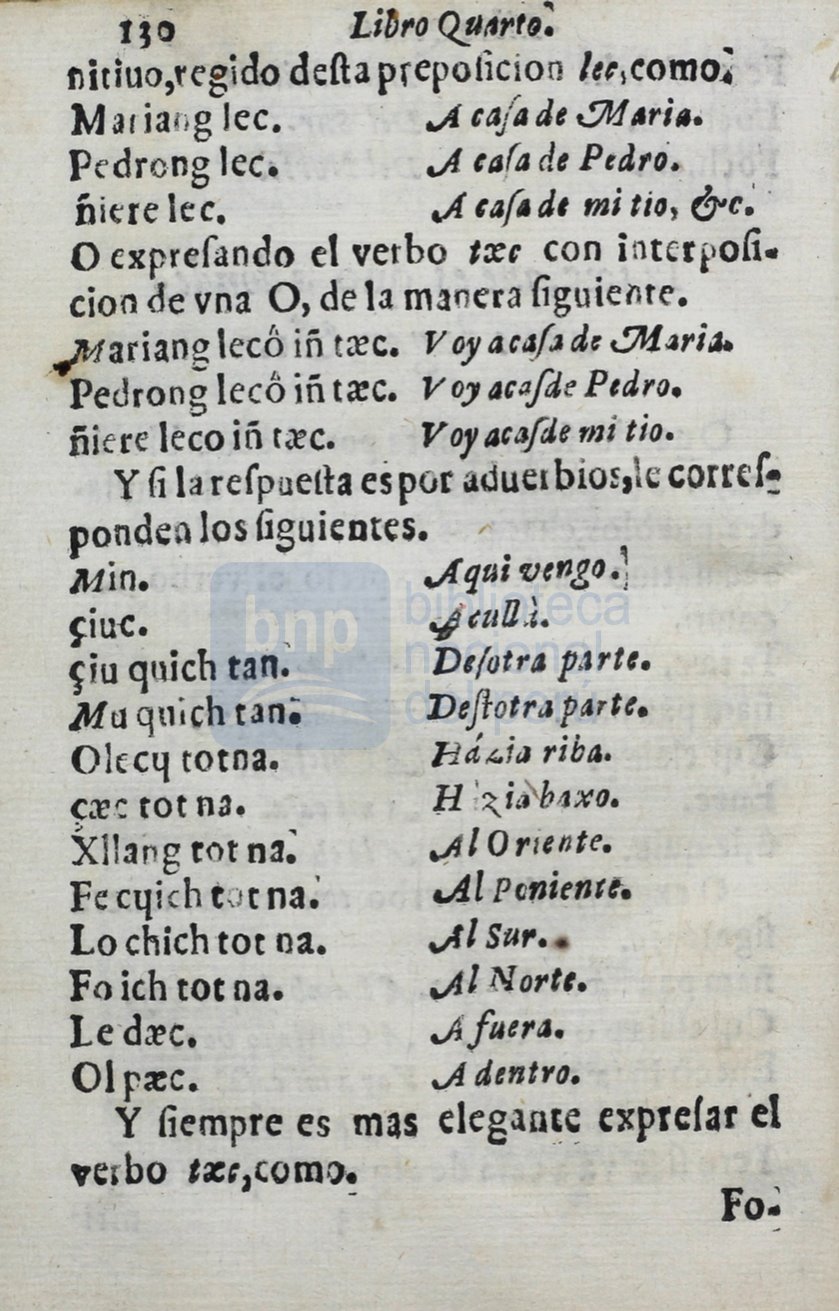 130 Libro Quarto.
nitiuo, regido deſta prepoſicion lec, como.
Mariang lec. A caſa de Maria.
Pedrong lec. A caſa de Pedro.
ñiere lec. A caſa de mi tio, &c.
O expreſando el verbo tæc con interpoſi-
cion de vna O, de la manera ſiguiente.
Mariang lecô iñ tæc. Voy a caſa de Maria.
Pedrong lecô iñ tæc. Voy acaſde Pedro.
ñiere leco iñ tæc. Voy acaſde mi tio.
Y ſi la reſpueſta es por aduerbios, le correſ-
ponden los ſiguientes.
Min. Aqui vengo.
çiuc. Acullà.
çiu quich tan. Deſotra parte.
Mu quich tan. Deſtotra parte.
Olecɥ totna. Házia riba.
çæc tot na. Hazia baxo.
Xllang tot na. Al Oriente.
Fecɥich tot na. Al Poniente.
Lo chich tot na. Al Sur.
Fo ich tot na. Al Norte.
Le dæc. A fuera.
Ol pæc. A dentro.
Y ſiempre es mas elegante expreſar el
verbo tæc, como.
Fo-
bnp biblioteca
nacional
del perú